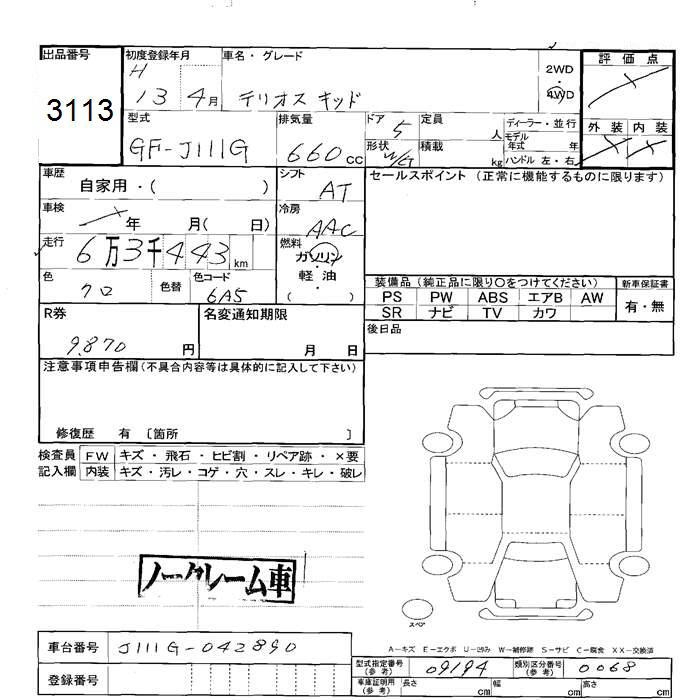 出品番号 初度登録年月 車名・グレード 評価点
3113 H 13 4月 テリオスキッド 2WD・4WD
型式 排気量 ドア 定員 ディーラー・並行 外装 内装
GF-J111G 660cc 5 人 モデル年式 年
形状 W/G 積載 kg ハンドル 左・右
車歴 シフト セールスポイント (正常に機能するものに限ります)
自家用・( ) AT
車検 年 月( 日) 冷房 AAC
走行 6万3千443km 燃料 ガソリン・軽油・( )
色 クロ 色替 色コード 6A5
装備品 (純正品に限り○をつけてください) 新車保証書
PS PW ABS エアB AW 有・無
SR ナビ TV カワ
R券 名変通知期限 後日品
9,870円 月 日
注意事項申告欄(不具合内容等は具体的に記入して下さい)
修復歴 有 〔箇所 〕
検査員 FW キズ・飛石・ヒビ割・リペア跡・×要
記入欄 内装 キズ・汚レ・コゲ・穴・スレ・キレ・破レ
ノークレーム車
スペア
A-キズ E-エクボ U-凹み W-補修跡 S-サビ C-腐食 XX-交換済
車台番号 J111G-042890
登録番号
型式指定番号(参考) 09194 類別区分番号(参考) 0068
車庫証明用(参考) 長さ cm 幅 cm 高さ cm